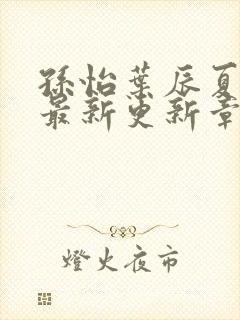 孫怡葉辰夏
最新更新章
燈火夜市